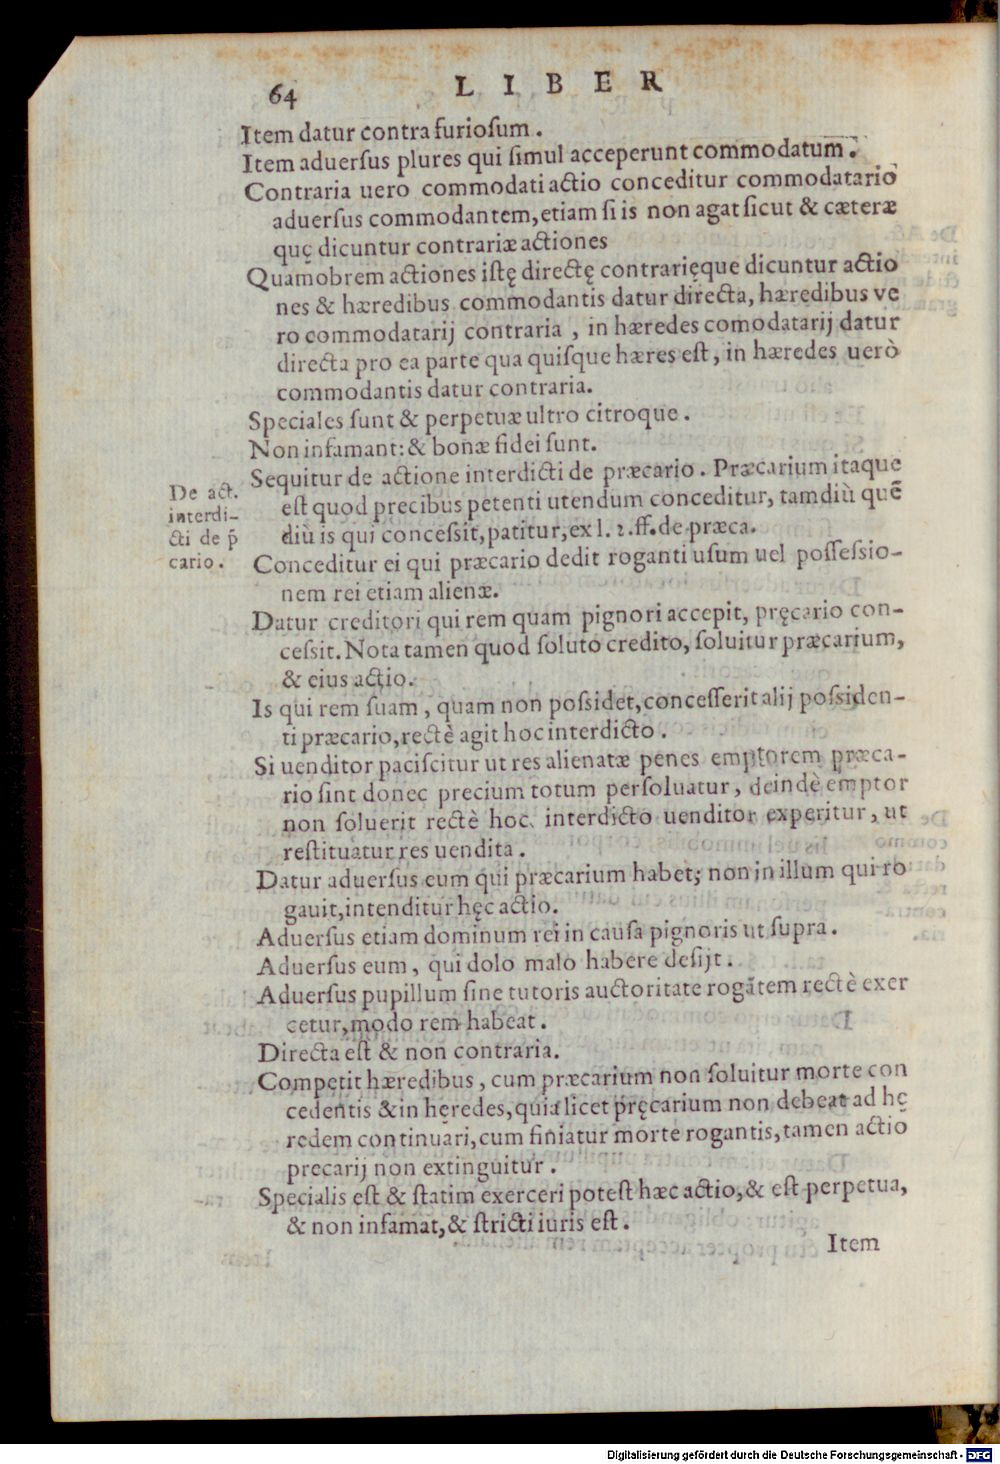 64
LIBER
Item datur contra furiosum.
Item aduersus plures qui simul acceperunt commodatum.
Contraria uero commodati actio conceditur commodatario
aduersus commodantem, etiam si is non agat sicut & cæteræ
quę dicuntur contrariæ actiones
Quamobrem actiones istę directę contrarięque dicuntur actio
nes & hæredibus commodantis datur directa, hæredibus ve
ro commodatarij contraria, in hæredes comodatarij datur
directa pro ea parte qua quisque hæres est, in hæredes uerò
commodantis datur contraria.
Speciales sunt & perpetuæ ultro citroque.
Non infamant: & bonæ fidei sunt.
De act.
interdi-
cti de p̃
cario.
Sequitur de actione interdicti de præcario. Præcarium itaque
est quod precibus petenti utendum conceditur, tamdiù quẽ
diù is qui concessit, patitur, ex l. 2. ff. de præca.
Conceditur ei qui præcario dedit roganti usum uel possessio-
nem rei etiam alienæ.
Datur creditori qui rem quam pignori accepit, pręcario con-
cessit. Nota tamen quod soluto credito, soluitur præcarium,
& eius actio.
Is qui rem suam, quam non possidet, concesserit alij possiden-
ti præcario, rectè agit hoc interdicto.
Si uenditor paciscitur ut res alienatæ penes emptorem præca-
rio sint donec precium totum persoluatur, deindè emptor
non soluerit rectè hoc interdicto uenditor experitur, ut
restituatur res uendita.
Datur aduersus eum qui præcarium habet; non in illum qui ro
gauit, intenditur hęc actio.
Aduersus etiam dominum rei in causa pignoris ut supra.
Aduersus eum, qui dolo malo habere desijt.
Aduersus pupillum sine tutoris auctoritate rogãtem rectè exer
cetur, modo rem habeat.
Directa est & non contraria.
Competit hæredibus, cum præcarium non soluitur morte con
cedentis & in hęredes, quia licet pręcarium non debeat ad hę
redem continuari, cum finiatur morte rogantis, tamen actio
precarij non extinguitur.
Specialis est & statim exerceri potest hæc actio, & est perpetua,
& non infamat, & stricti iuris est.
Item
Digitalisierung gefördert durch die Deutsche Forschungsgemeinschaft - DFG